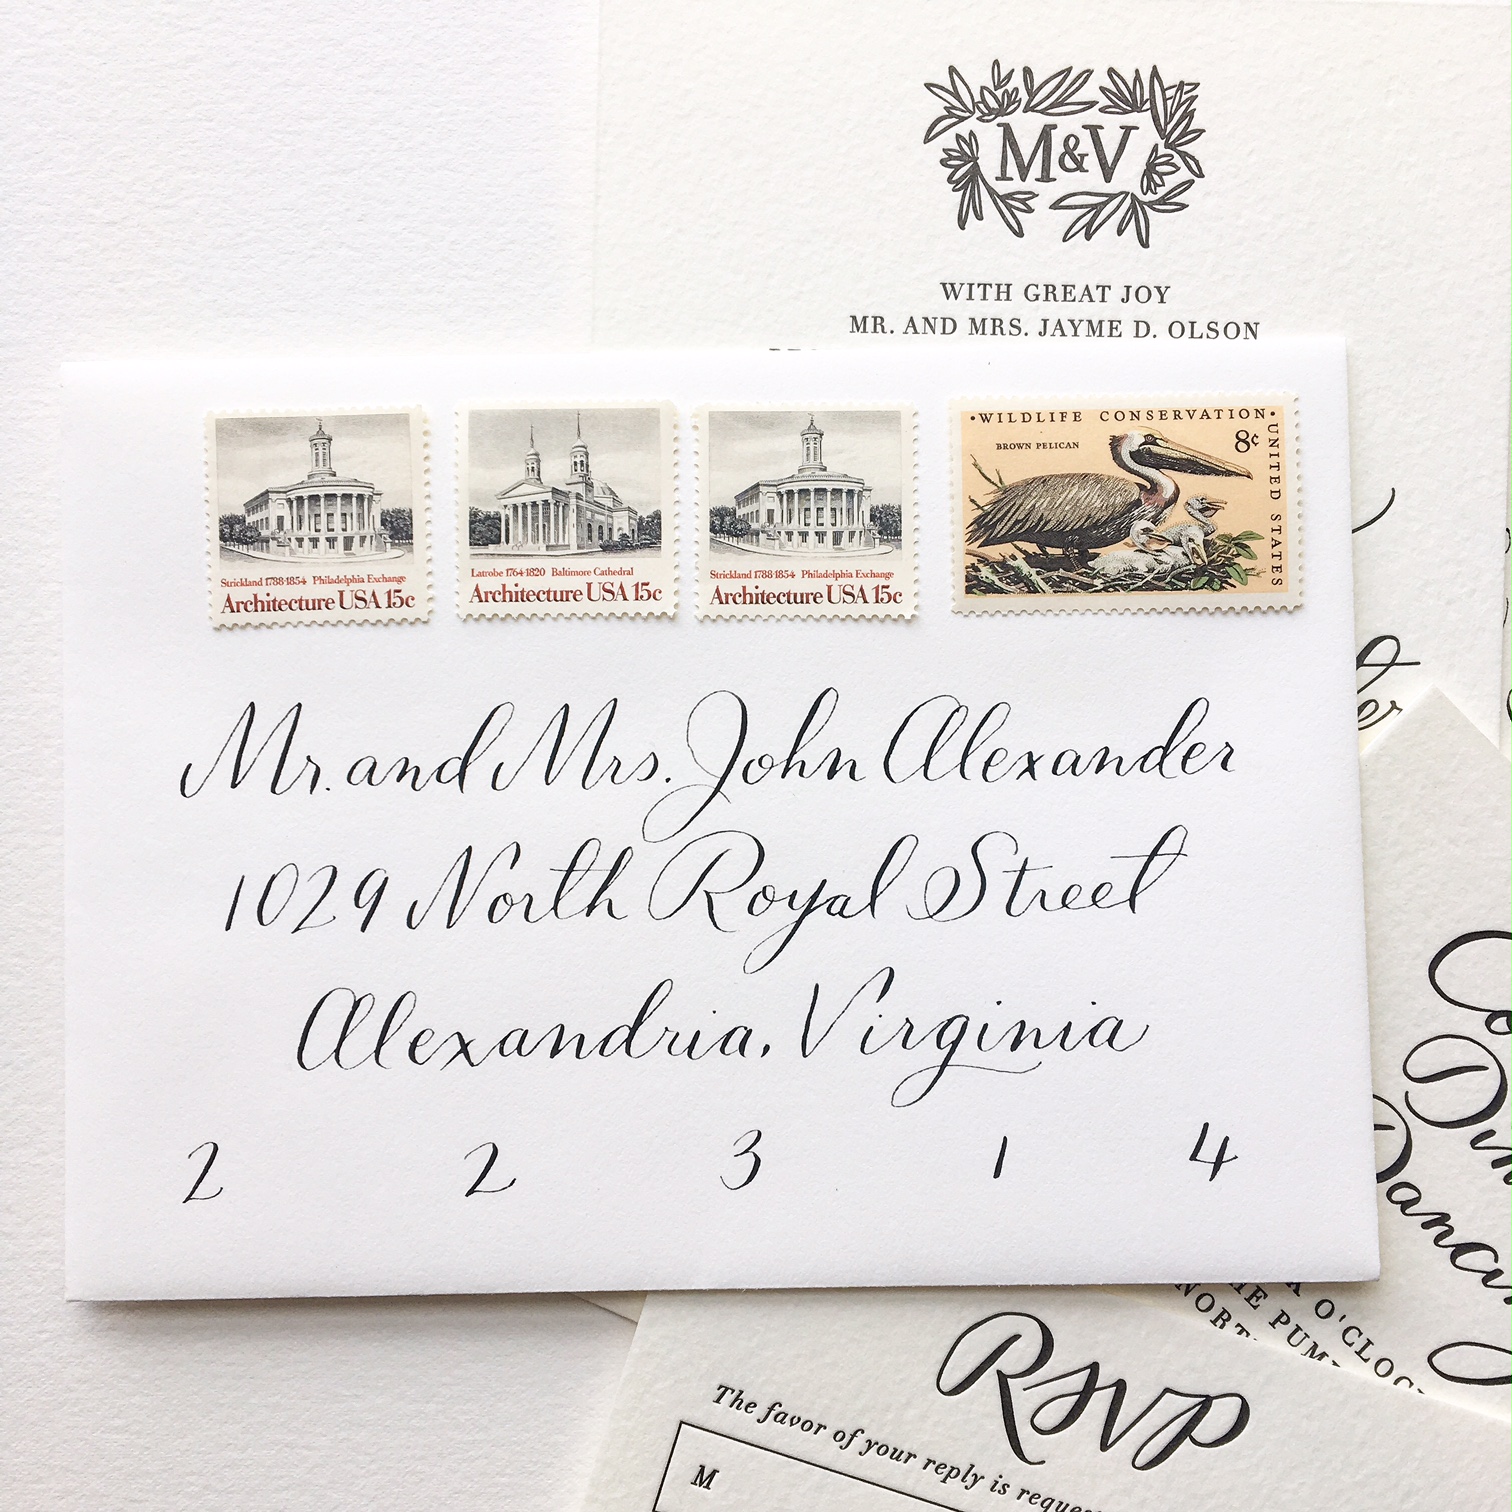 M&V
WITH GREAT JOY
MR. AND MRS. JAYME D. OLSON
Strickland 1788-1854 Philadelphia Exchange
Architecture USA 15c
Latrobe 1764-1820 Baltimore Cathedral
Architecture USA 15c
Strickland 1788-1854 Philadelphia Exchange
Architecture USA 15c
•WILDLIFE CONSERVATION•
UNITED STATES
BROWN PELICAN
8¢
Mr. and Mrs. John Alexander
1029 North Royal Street
Alexandria, Virginia
2 2 3 1 4
O'CLOC
NORT
RSVP
The favor of your reply is reque
M